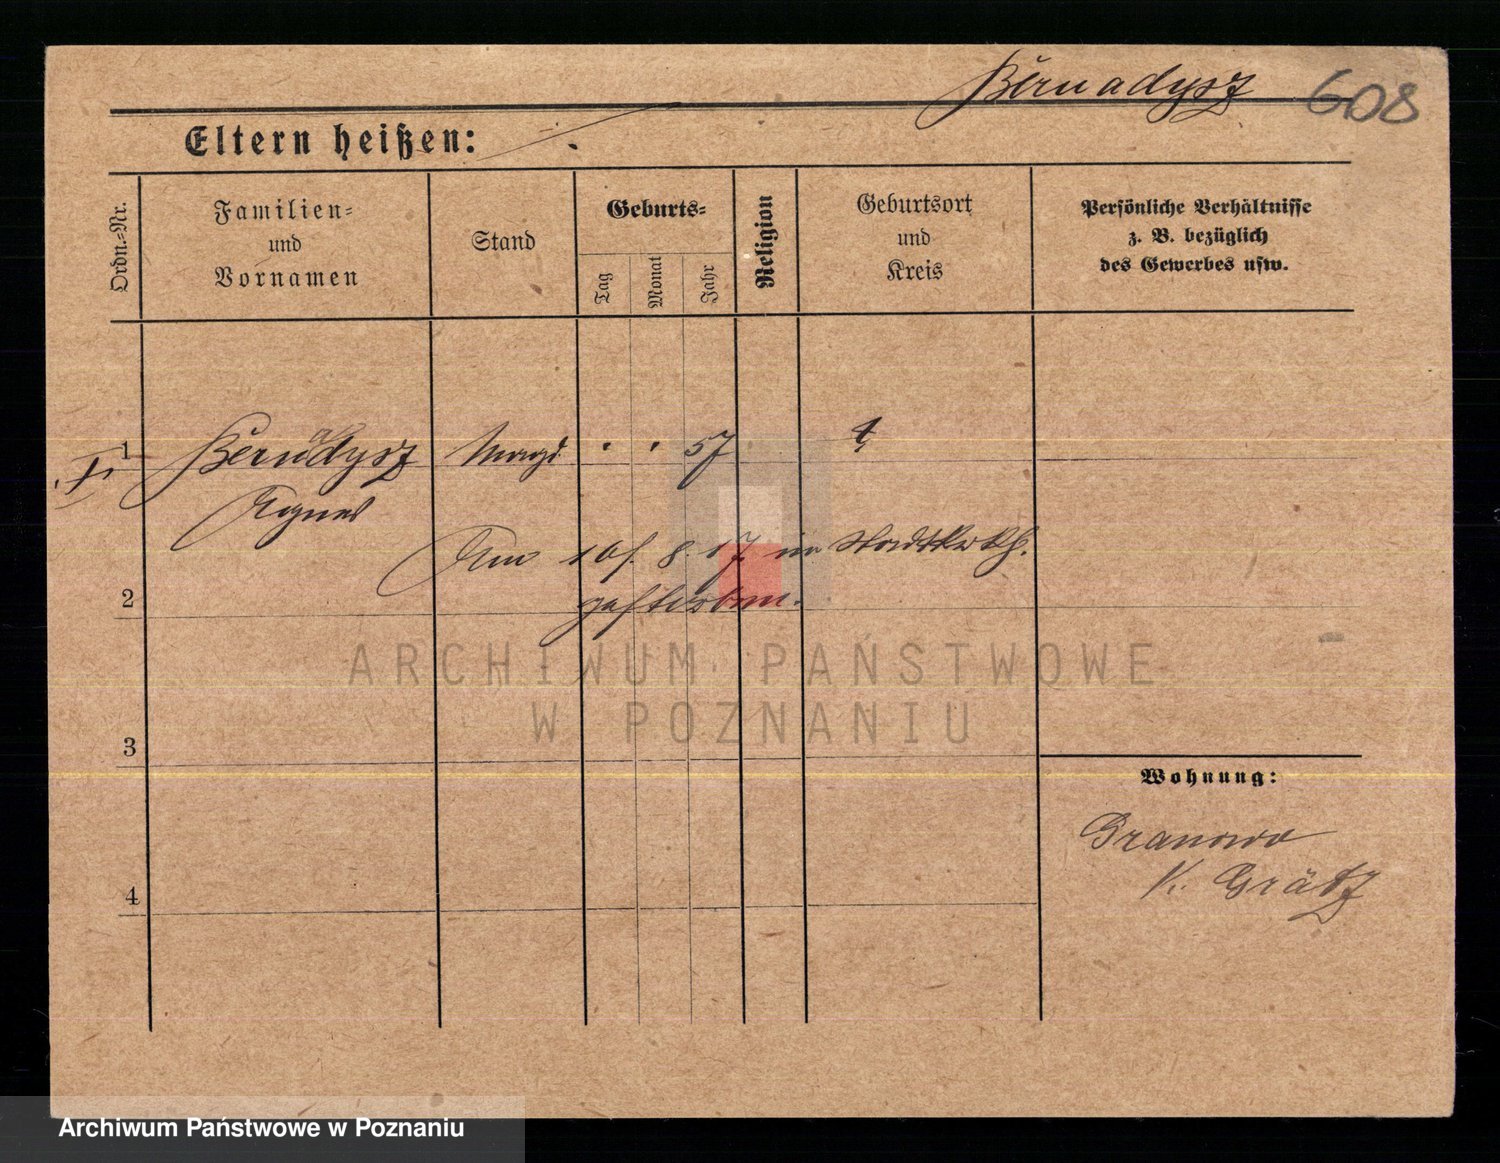 Bernadysz 608
Eltern heißen:
Ordn.-Nr.
Familien-
und
Vornamen
Stand
Geburts-
Tag
Monat
Jahr
Religion
Geburtsort
und
Kreis
Persönliche Verhältnisse
z. B. bezüglich
des Gewerbes usw.
1 Bernadysz Magd 57
Agnes
Am 16/. 8. 17 im Stadtkrkh.
2 gestorben.
ARCHIWUM PAŃSTWOWE
W POZNANIU
3
Wohnung:
Granowo
K. Grätz
4
Archiwum Państwowe w Poznaniu